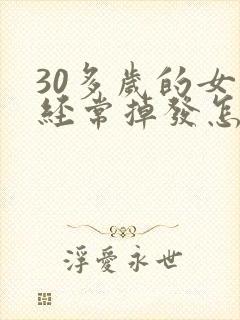 30多歲的女
經常掉發怎
浮愛永世